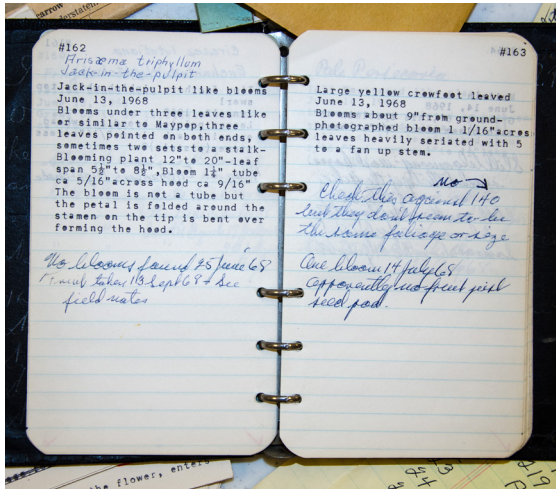 #162
Arisaema triphyllum
Jack-in-the-pulpit
Jack-in-the-pulpit like blooms
June 13, 1968
Blooms under three leaves like
or similar to Maypop,three
leaves pointed on both ends,
sometimes two sets to a stalk-
Blooming plant 12"to 20"-leaf
span 5½"to 8½",Bloom 1¼" tube
ca 5/16"across hood ca 9/16"
The bloom is not a tube but
the petal is folded around the
stamen on the tip is bent over
forming the hood.
No blooms found 25 June 68
taken 13 Sept 68 + See
field notes
#163
Large yellow crowfoot leaved
June 13, 1968
Blooms about 9"from ground-
photographed bloom 1 1/16"across
leaves heavily seriated with 5
to a fan up stem.
No
Check this against 140
but they don't seem to be
the same foliage or size
One bloom 14 July 68
apparently no fruit just
seed pod.
the flower, enters